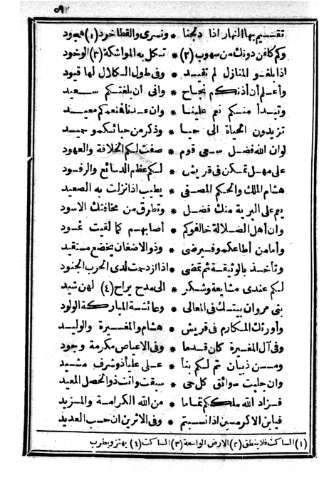 ٥٢
تقتسم بها النهار اذا دلجنا * ونسرى والقطا خود (١) هجود
وكم كان دونك من سهوب (٢) * تكل به المواشكة (٣) الوخود
اذا بلغو المنازل لم تقيد * وفى طول الكلال لها قيود
وأعلم أن اذنكم نجاح * وانى ان بلغتكم سعيد
وتبدأ منكم نعم علينا * وان عدنا فنعمكم معيد
تزيدون الحياة الى حبا * وذكر من حبائكم وجيد
لوان الله فضل سعى قوم * صفت لكم الخلافة والعهود
على مهل تمكن فى قريش * لكم عظم الدسائع والرفود
هشام الملك والحكم المصفى * يطيب اذا نزلت به الصعيد
يعم على البرية منك فضل * وتطرق من مخافتك الاسود
وان أهل الضلالة خالفوكم * أصابهم كما لقيت ثمود
وأما من أطاعكم فيرضى * وذو الاضغان يخضع مستقيد
وتأخذ بالوثيقة ثم تمضى * اذا ازدحمت لدى الحرب الجنود
لكم عندى مشايعة وشكر * الى مدح يراح (٤) لهن نشيد
بنى مروان بيتك فى المعالى * وعائشة المباركة الولود
وأورثك المكارم فى قريش * هشام والمغيرة والوليد
وفى آل المغيرة كان قدما * وفى الاعياص مكرمة وجود
ومن ذبيان تم لكم بناء * على علياء ذو شرف مشيد
وان حلبت سوابق كل حى * سبقت وأنت ذو الخصل المعيد
فزاد الله ملككم تماما * من الله الكرامة والمزيد
فيا ابن الاكرمين اذا نسبتم * وفى الاثرين ان حسب العديد
(١) الساكت فلا ينطق (٢) الارض الواسعة (٣) الساكت (٤) يهتز ويطرب